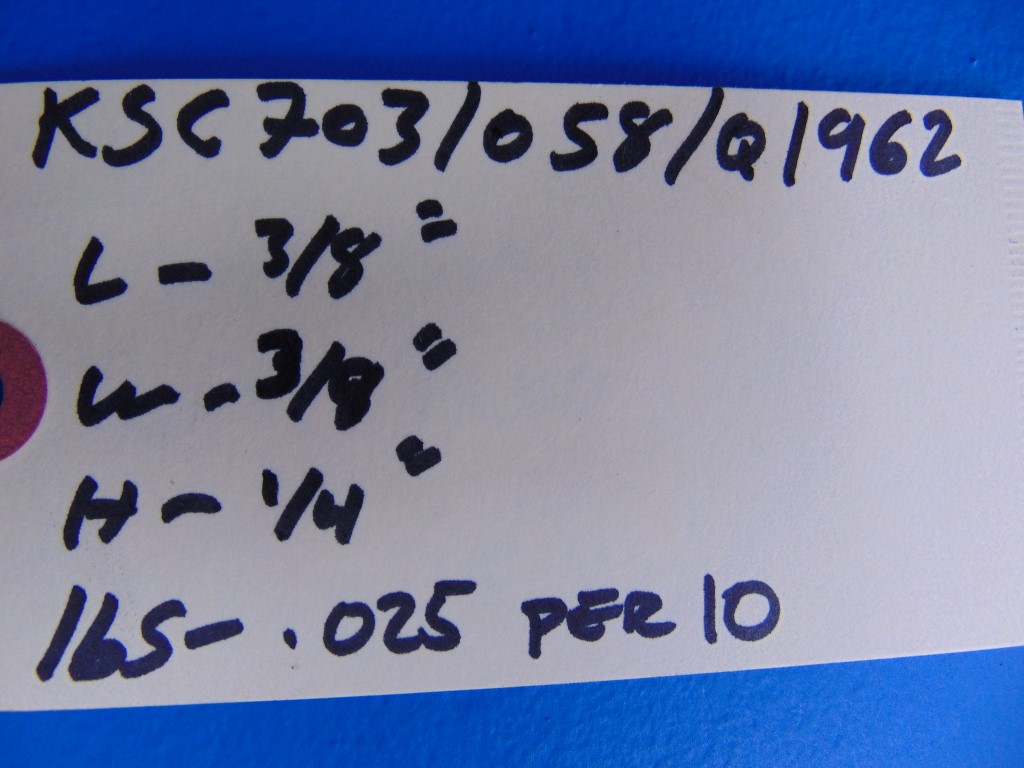 KSC703/058/Q1962
L - 3/8"
W - 3/8"
H - 1/4"
lbS - .025 PER 10